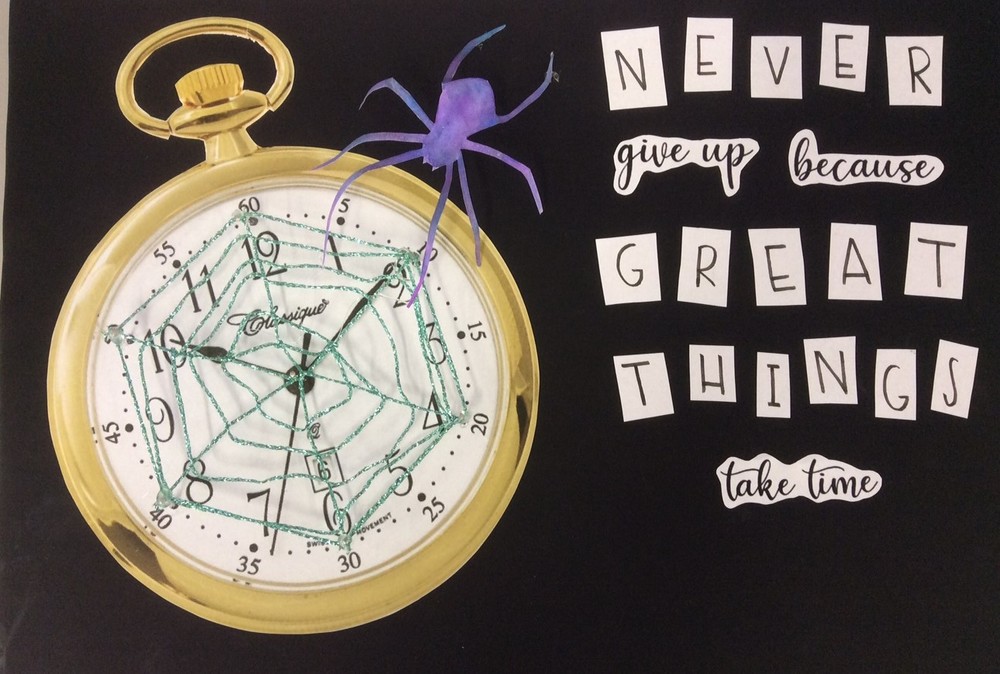 NEVER
give up because
GREAT
THINGS
take time
60
5
55
12
1
11
2
Classique
10
3
15
9
4
45
20
8
5
6
7
6
25
40
MOVEMENT
35
30